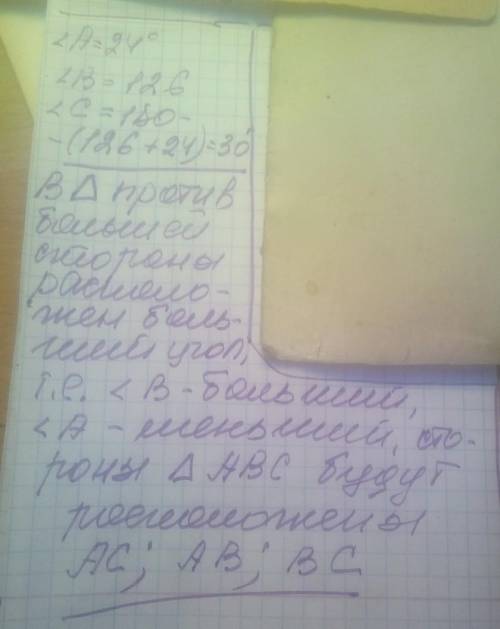 <A=24°
<B=126
<C=180-
-(126+24)=30°
В △ против
большей
стороны
располо-
жен боль-
ший угол,
т.е. <B-больший,
<A - меньший, сто-
роны △ ABC будут
расположены
AC; AB; BC